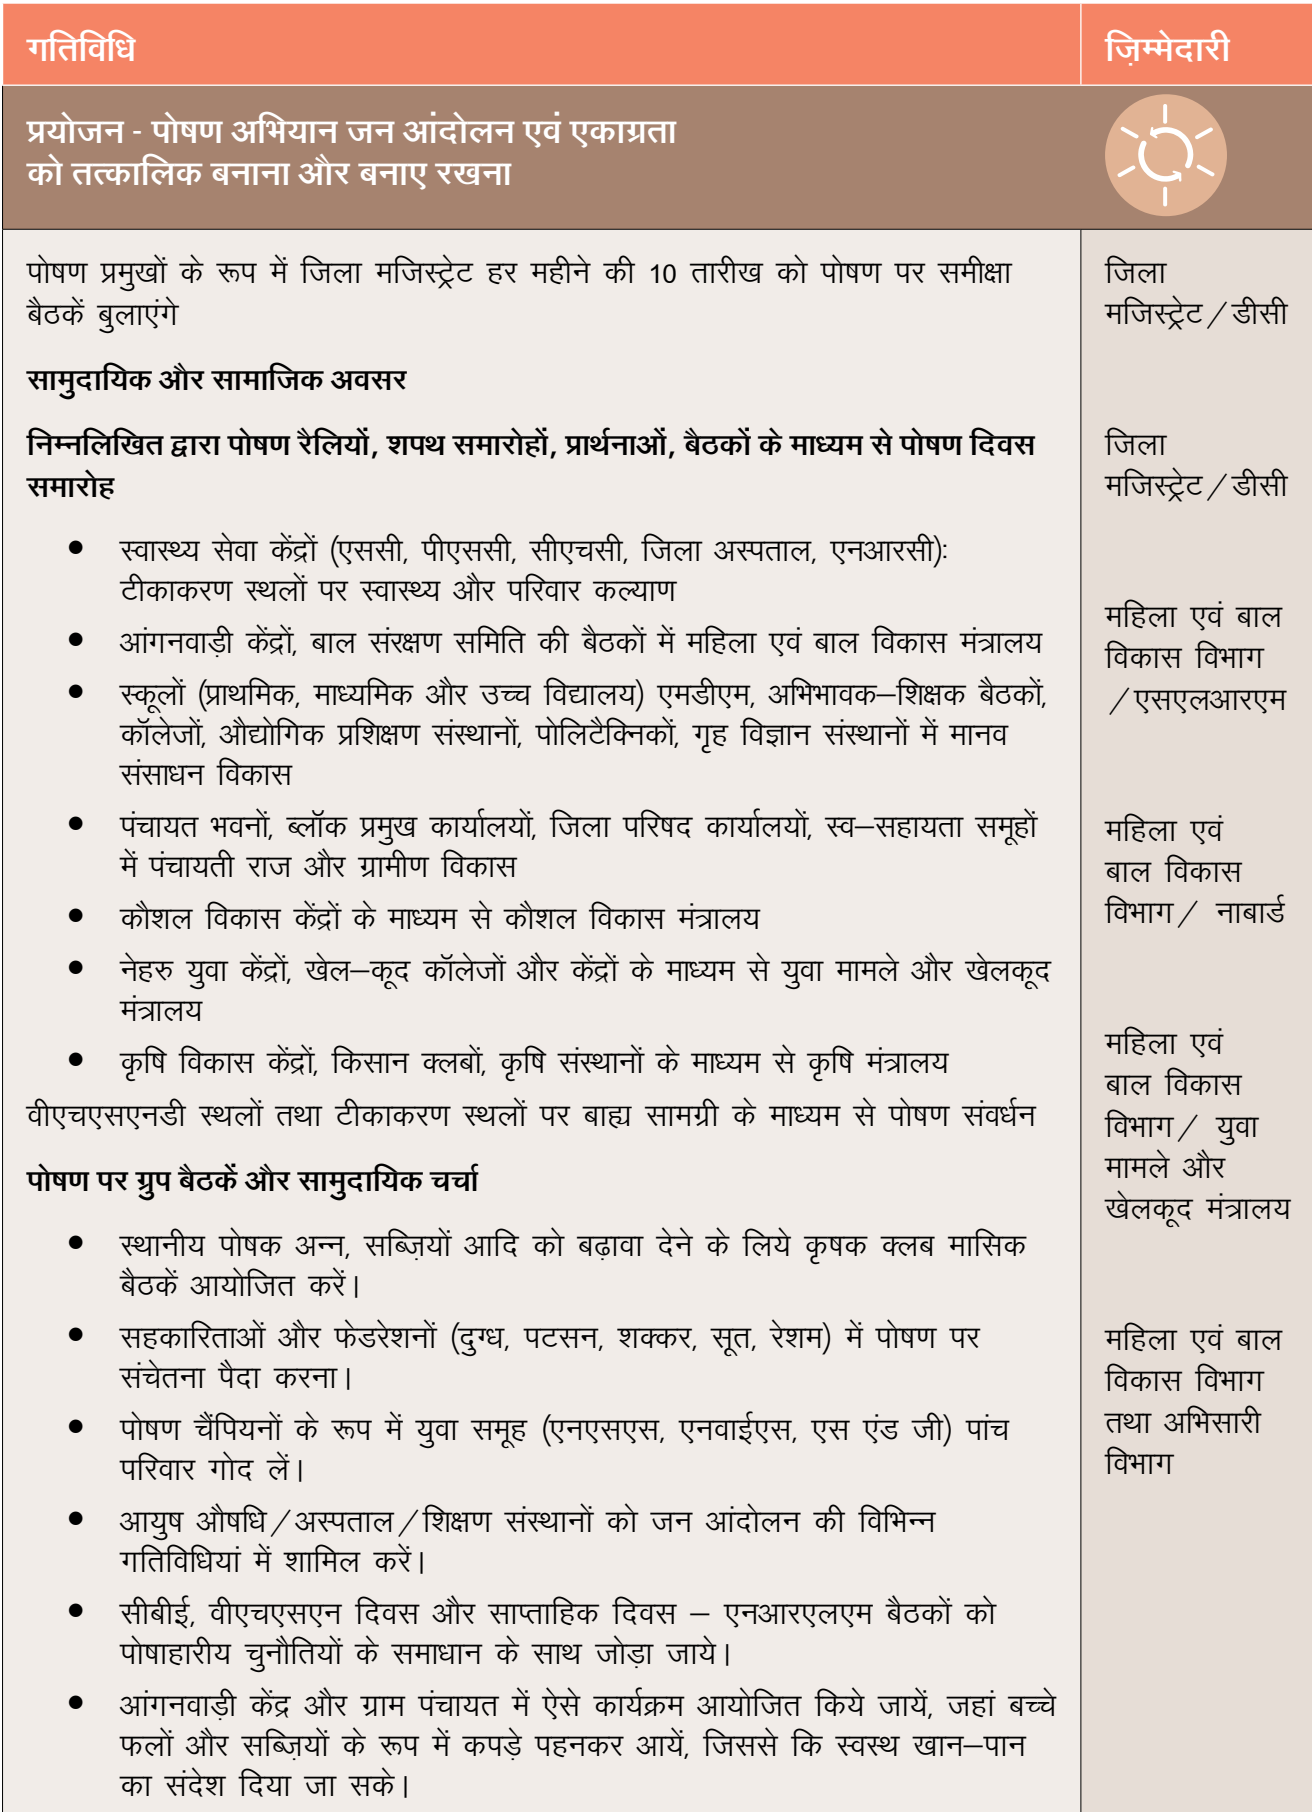 गतिविधि
ज़िम्मेदारी
प्रयोजन - पोषण अभियान जन आंदोलन एवं एकाग्रता
को तत्कालिक बनाना और बनाए रखना
पोषण प्रमुखों के रूप में जिला मजिस्ट्रेट हर महीने की 10 तारीख को पोषण पर समीक्षा
बैठकें बुलाएंगे
सामुदायिक और सामाजिक अवसर
निम्नलिखित द्वारा पोषण रैलियों, शपथ समारोहों, प्रार्थनाओं, बैठकों के माध्यम से पोषण दिवस
समारोह
• स्वास्थ्य सेवा केंद्रों (एससी, पीएससी, सीएचसी, जिला अस्पताल, एनआरसी):
टीकाकरण स्थलों पर स्वास्थ्य और परिवार कल्याण
• आंगनवाड़ी केंद्रों, बाल संरक्षण समिति की बैठकों में महिला एवं बाल विकास मंत्रालय
• स्कूलों (प्राथमिक, माध्यमिक और उच्च विद्यालय) एमडीएम, अभिभावक–शिक्षक बैठकों,
कॉलेजों, औद्योगिक प्रशिक्षण संस्थानों, पोलिटैक्निकों, गृह विज्ञान संस्थानों में मानव
संसाधन विकास
• पंचायत भवनों, ब्लॉक प्रमुख कार्यालयों, जिला परिषद कार्यालयों, स्व–सहायता समूहों
में पंचायती राज और ग्रामीण विकास
• कौशल विकास केंद्रों के माध्यम से कौशल विकास मंत्रालय
• नेहरु युवा केंद्रों, खेल–कूद कॉलेजों और केंद्रों के माध्यम से युवा मामले और खेलकूद
मंत्रालय
• कृषि विकास केंद्रों, किसान क्लबों, कृषि संस्थानों के माध्यम से कृषि मंत्रालय
वीएचएसएनडी स्थलों तथा टीकाकरण स्थलों पर बाह्य सामग्री के माध्यम से पोषण संवर्धन
पोषण पर ग्रुप बैठकें और सामुदायिक चर्चा
• स्थानीय पोषक अन्न, सब्ज़ियों आदि को बढ़ावा देने के लिये कृषक क्लब मासिक
बैठकें आयोजित करें।
• सहकारिताओं और फेडरेशनों (दुग्ध, पटसन, शक्कर, सूत, रेशम) में पोषण पर
संचेतना पैदा करना।
• पोषण चैंपियनों के रूप में युवा समूह (एनएसएस, एनवाईएस, एस एंड जी) पांच
परिवार गोद लें।
• आयुष औषधि/अस्पताल/शिक्षण संस्थानों को जन आंदोलन की विभिन्न
गतिविधियां में शामिल करें।
• सीबीई, वीएचएसएन दिवस और साप्ताहिक दिवस – एनआरएलएम बैठकों को
पोषाहारीय चुनौतियों के समाधान के साथ जोड़ा जाये।
• आंगनवाड़ी केंद्र और ग्राम पंचायत में ऐसे कार्यक्रम आयोजित किये जायें, जहां बच्चे
फलों और सब्ज़ियों के रूप में कपड़े पहनकर आयें, जिससे कि स्वस्थ खान–पान
का संदेश दिया जा सके।
जिला
मजिस्ट्रेट/डीसी
जिला
मजिस्ट्रेट/डीसी
महिला एवं बाल
विकास विभाग
/एसएलआरएम
महिला एवं
बाल विकास
विभाग/ नाबार्ड
महिला एवं
बाल विकास
विभाग/ युवा
मामले और
खेलकूद मंत्रालय
महिला एवं बाल
विकास विभाग
तथा अभिसारी
विभाग